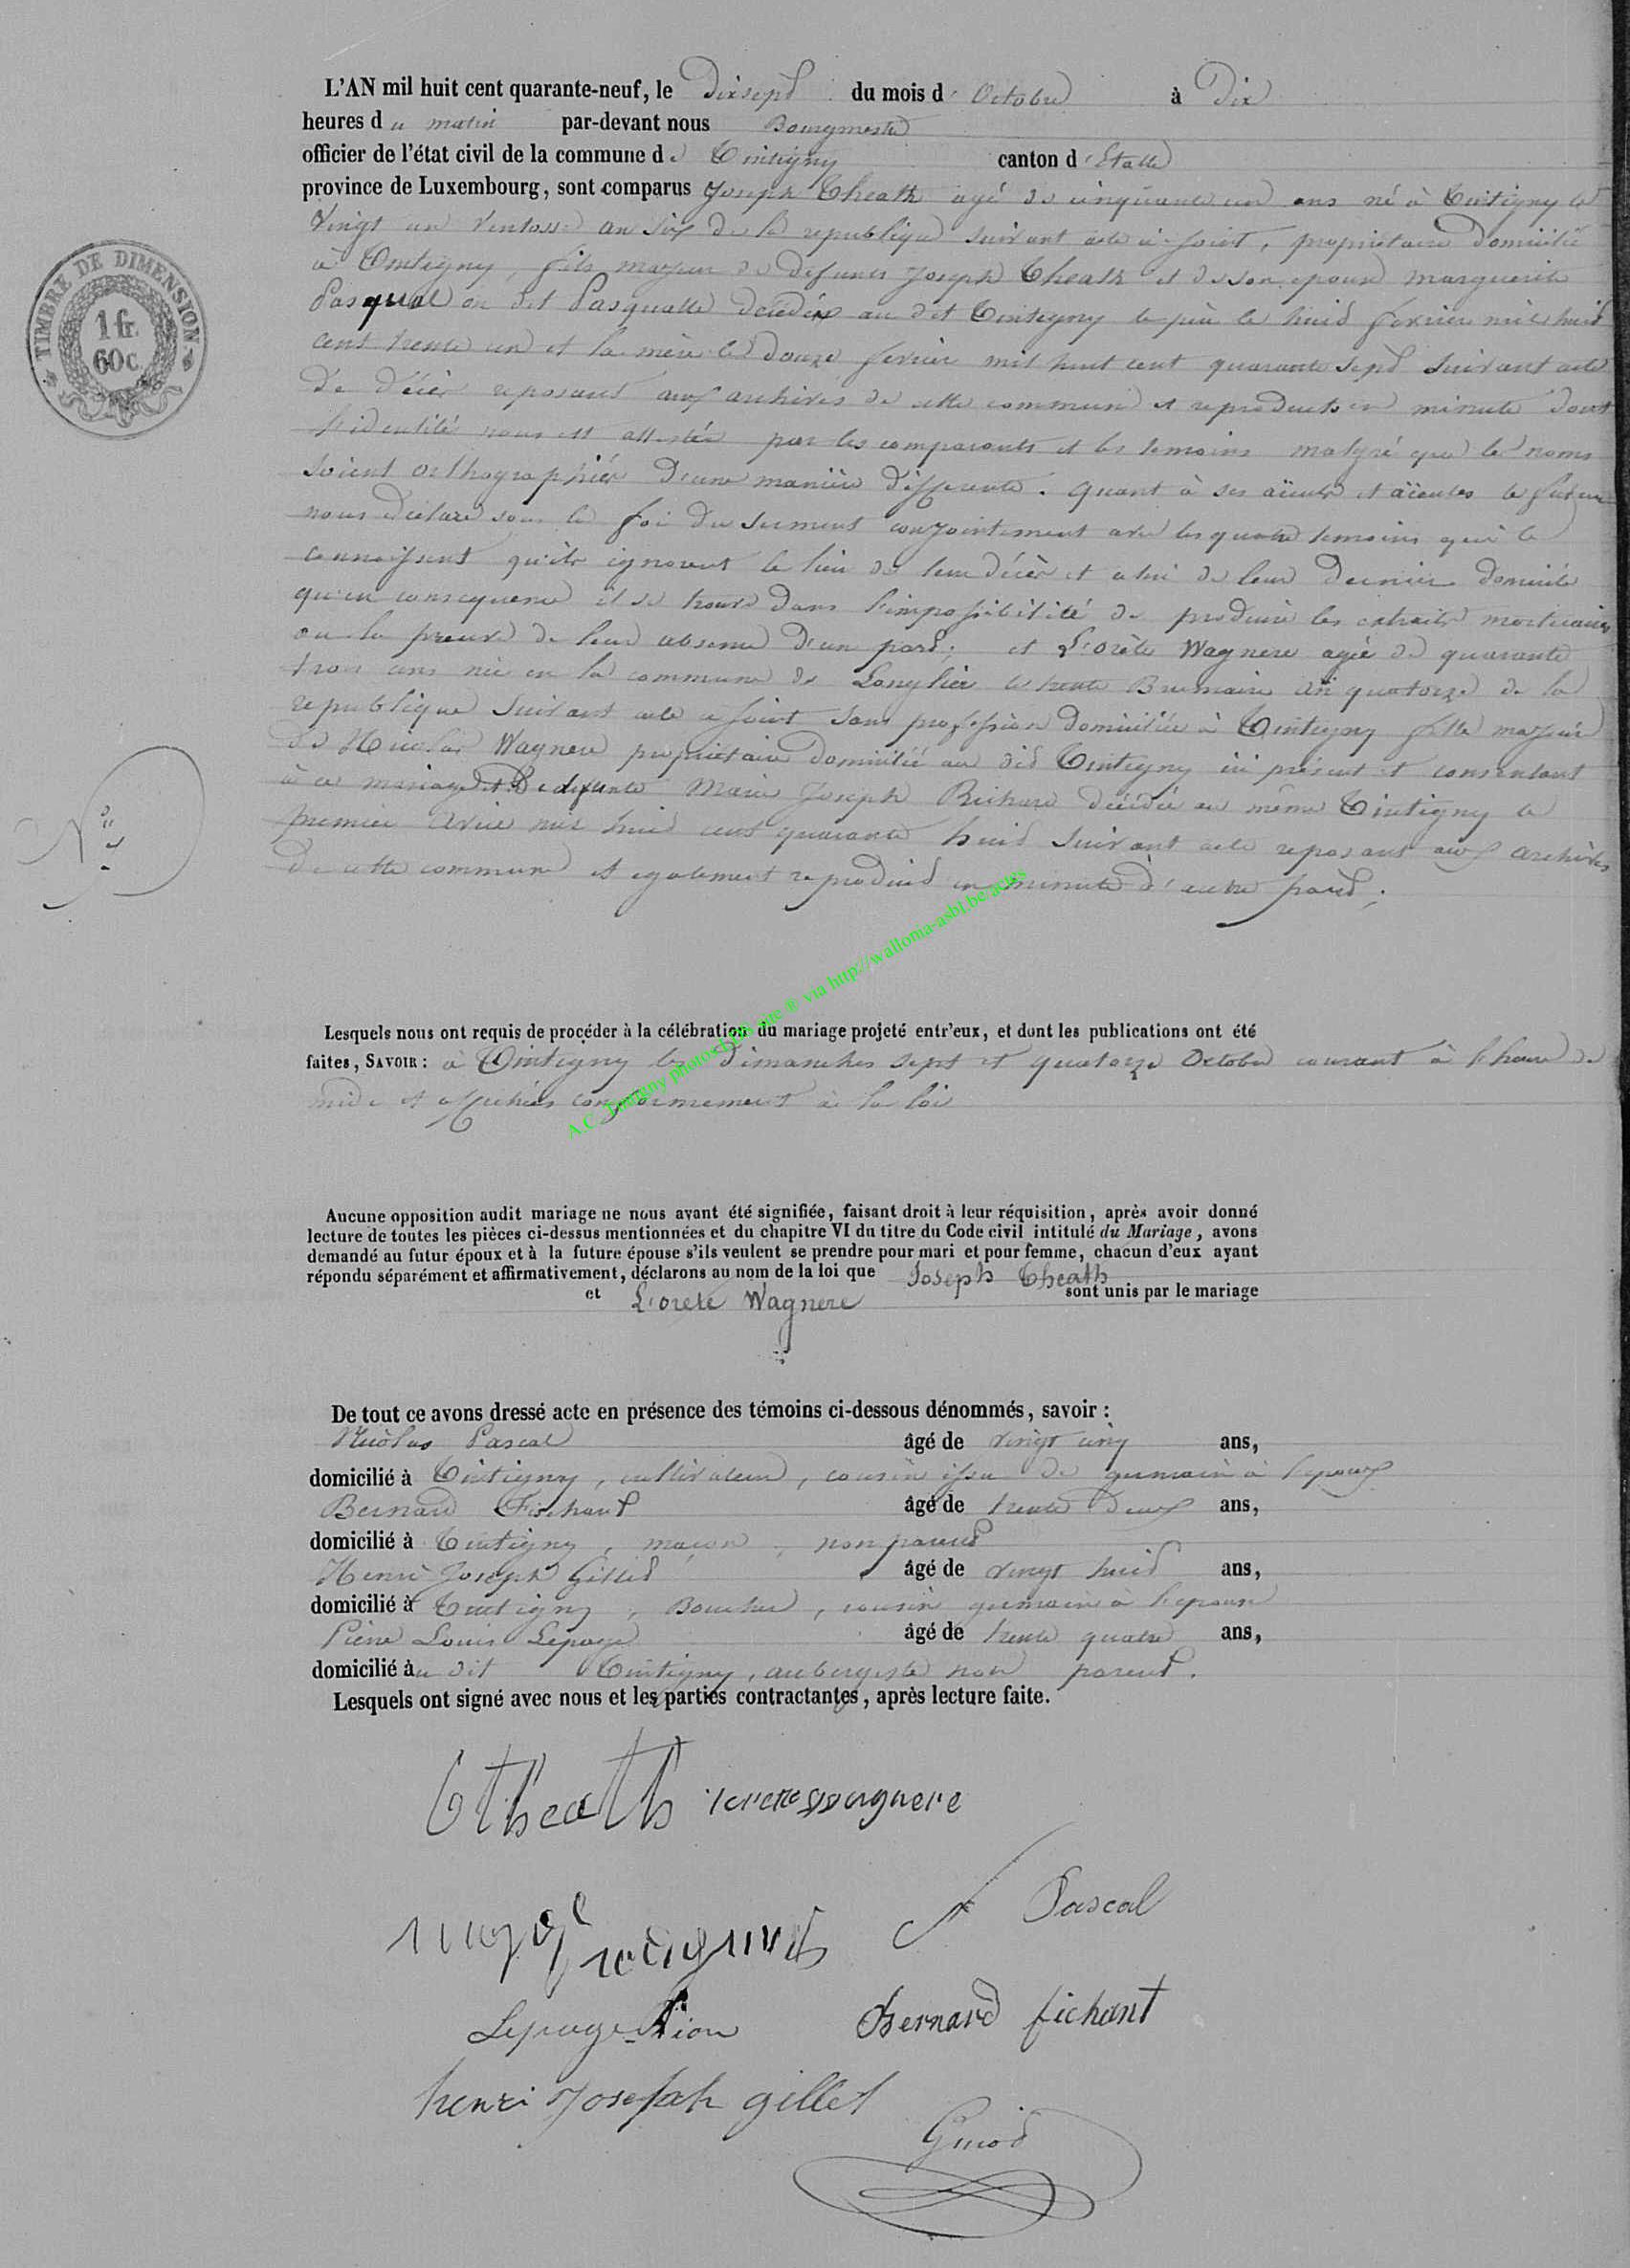 L'AN mil huit cent quarante-neuf, le Dixsept du mois d'Octobre à Dix
heures du matin par-devant nous Bourgmestre
officier de l'état civil de la commune de Tintigny canton d'Etalle
province de Luxembourg, sont comparus Joseph Theath agé de cinquante un ans né à Tintigny le
Vingt un Ventosse an six de la republique suivant acte ci-joint, propriétaire domicilié
à Tintigny, fils majeur de defunts Joseph Theath et de son epouse Marguerite
Pasqual ou dit Pasqualle décédés au dit Tintigny le père le huid fevrier mil huid
cent trente un et la mère le douze fevrier mil huit cent quarante sept suivant acte
de décès reposant aux archives de cette commune et reproduits en minute dont
l'identité nous est attestée par les comparants et les temoins malgré que le noms
soient orthographiés d'une manière différente. quant à ses aïeuls et aïeules le futur
nous déclare sous la foi du serment conjointement avec les quatre temoins qui le
connoissent qu'ils ignorent le lieu de leur décès et celui de leur dernier domicile
qu'en consequence il se trouve dans l'impossibilité de produire les extraits mortuaires
ou la preuve de leur absence d'une part; et L'orète Wagnere agée de quarante
trois ans née en la commune de Longlier le trente Brumaire an quatorze de la
republique suivant acte ci joint sans profession domiciliée à Tintigny fille majeure
de Nicolas Wagnere propriétaire domicilié au did Tintigny ici présent et consentant
à ce mariage et De defunte Marie Joseph Richard décédée au même Tintigny le
premier Avril mil huid cent quarante huid suivant acte reposant aux archives
de cette commune et egalement reproduid en minute d'autre pard;
TIMBRE DE DIMENSION
1 fr.
60 c.
N°
A.C. Tintigny photos LDS site ® via http://walloma-asbl.be actes
Lesquels nous ont requis de procéder à la célébration du mariage projeté entr'eux, et dont les publications ont été
faites, SAVOIR: à Tintigny les Dimanches sept et quatorze Octobre courant à l'heure de
midi et affichées conformement à la loi
Aucune opposition audit mariage ne nous ayant été signifiée, faisant droit à leur réquisition, après avoir donné
lecture de toutes les pièces ci-dessus mentionnées et du chapitre VI du titre du Code civil intitulé du Mariage, avons
demandé au futur époux et à la future épouse s'ils veulent se prendre pour mari et pour femme, chacun d'eux ayant
répondu séparément et affirmativement, déclarons au nom de la loi que Joseph Theath
et L'orete Wagnere sont unis par le mariage
De tout ce avons dressé acte en présence des témoins ci-dessous dénommés, savoir:
Nicolas Pascal âgé de vingt cinq ans,
domicilié à Tintigny, cultivateur, cousin issu de germain à l'epoux
Bernard Fichant âgé de trente deux ans,
domicilié à Tintigny, maçon, non parent
Henri Joseph Gillet âgé de vingt huid ans,
domicilié à Tintigny, Boucher, cousin germain à l'epouse
Pierre Louis Lepage âgé de trente quatre ans,
domicilié au dit Tintigny, aubergiste non parent.
Lesquels ont signé avec nous et les parties contractantes, après lecture faite.
Theath lorette wagnere
N Pascal
Lepage Bernard fichant
henri Joseph gillet